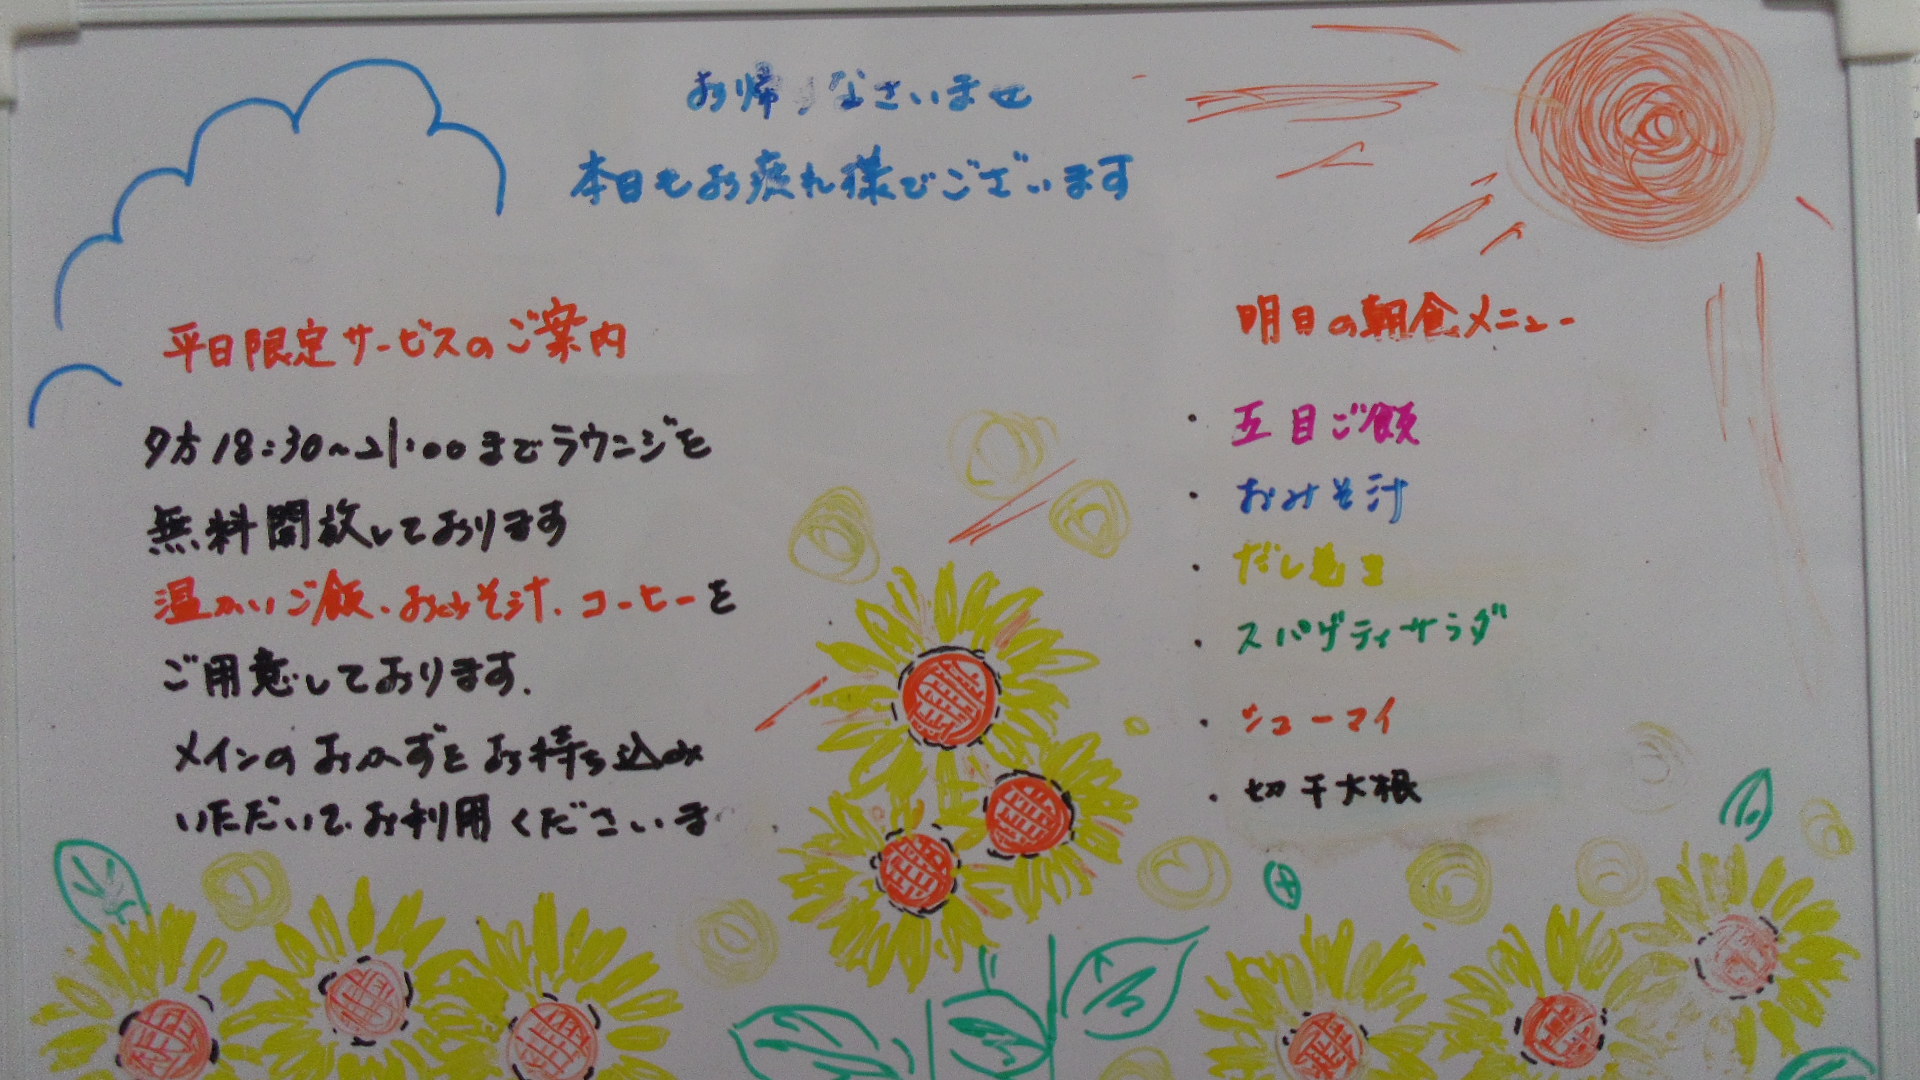 お帰りなさいませ
本日もお疲れ様でございます
平日限定サービスのご案内
夕方18:30~21:00までラウンジを
無料開放しております
温かいご飯、おみそ汁、コーヒーを
ご用意しております.
メインのおかずをお持ち込み
いただいて、お利用くださいま
明日の朝食メニュー
・五目ご飯
・おみそ汁
・だし巻き
・スパゲティサラダ
・シューマイ
・切干大根